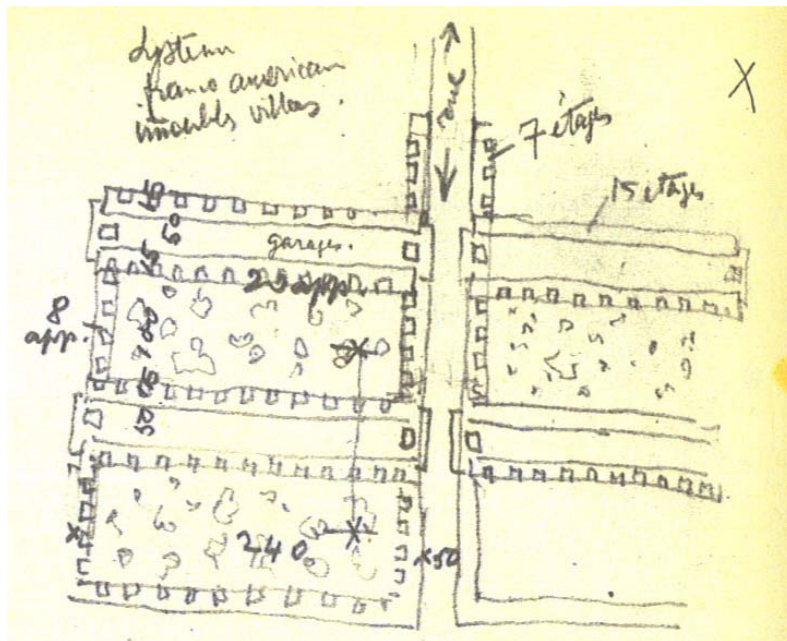 System
franco american
immeubles villas.
X
rue
7 étages
15 étages
15
50
garages.
15
23 app.
8
app.
50
240
x 50